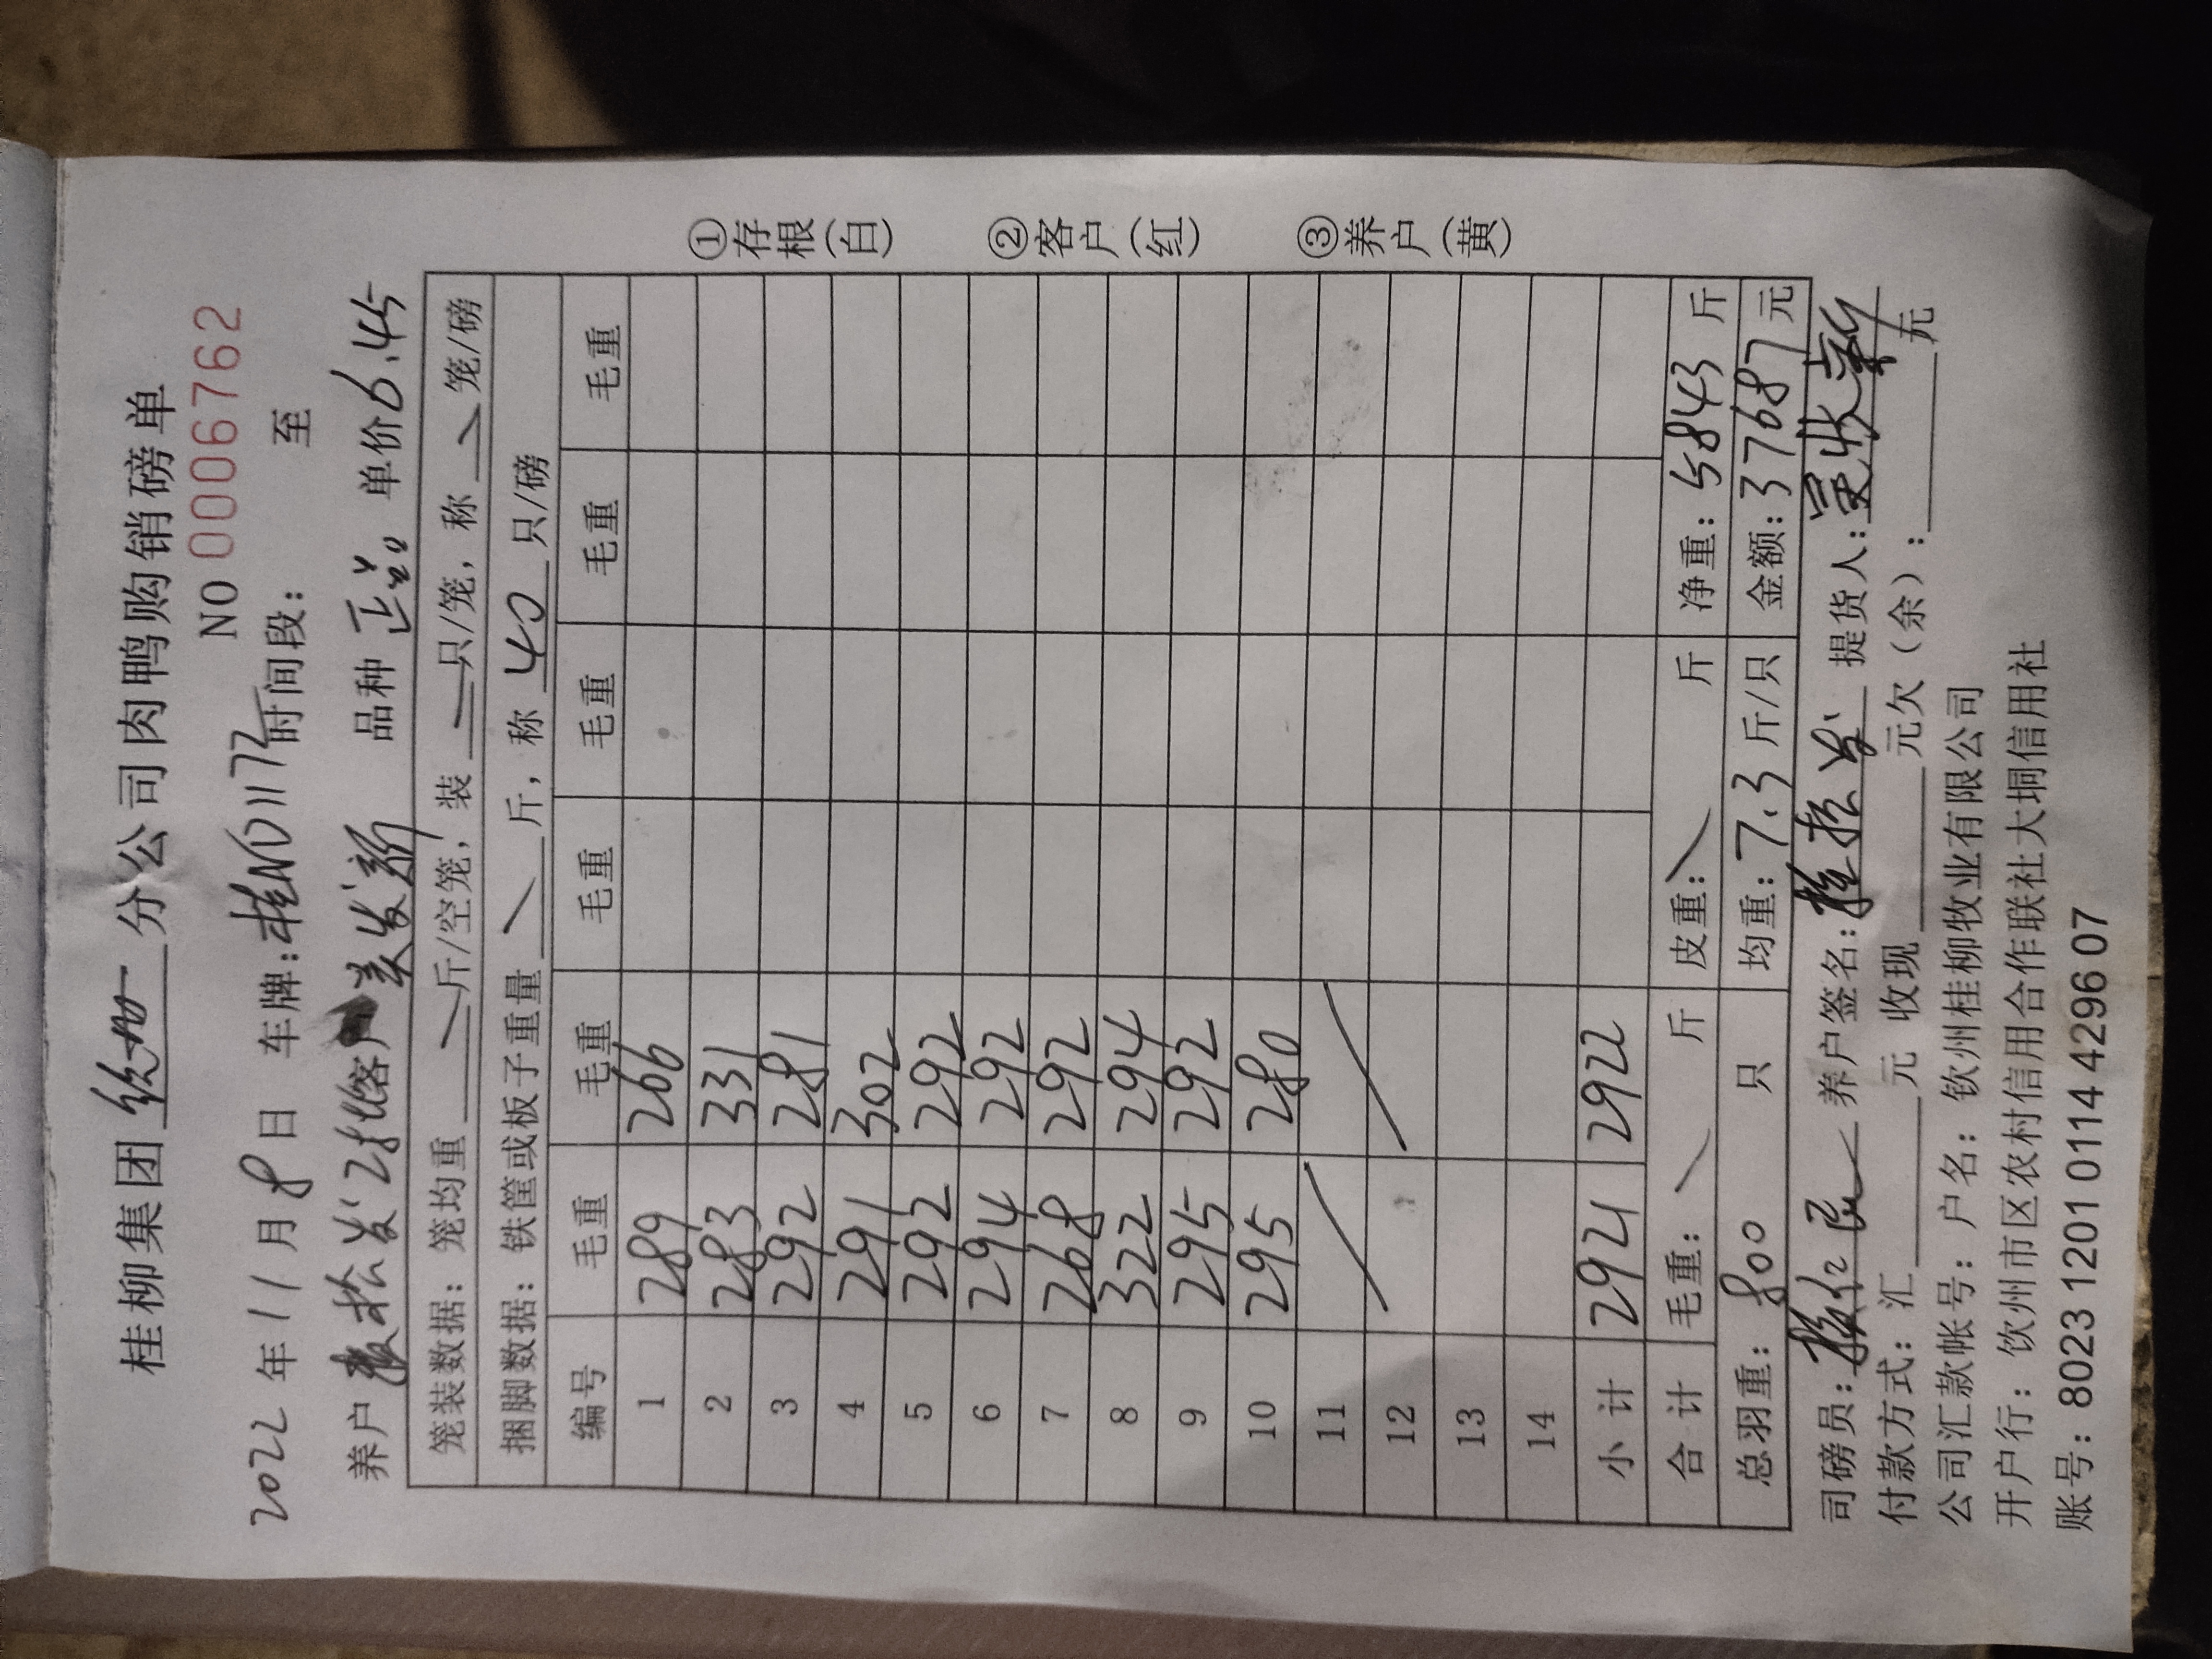 桂柳集团 分公司肉鸭购销磅单
NO 0006762
2022年11月8日 车牌:桂ND1172 时间段: 至
养户 松发2批 客户 发新 品种 正品 单价6.45
笼装数据:笼均重 斤/空笼,装 只/笼,称 笼/磅
捆脚数据:铁筐或板子重量 斤,称 40 只/磅
编号 毛重 毛重 毛重 毛重 毛重 毛重
1 289 266
2 283 331
3 292 281
4 291 302
5 292 292
6 294 292
7 268 292
8 322 294
9 295 292
10 295 280
11
12
13
14
小计 2921 2922
合计 毛重: 斤 皮重: 斤 净重:5843斤
总羽重:800 只 均重:7.3斤/只 金额:37687元
司磅员: 养户签名: 松发 提货人:
付款方式:汇 元 收现 元欠(余): 元
公司汇款帐号:户名:钦州桂柳牧业有限公司
开户行:钦州市区农村信用合作联社大垌信用社
账号:8023 1201 0114 4296 07
①存根(白)
②客户(红)
③养户(黄)